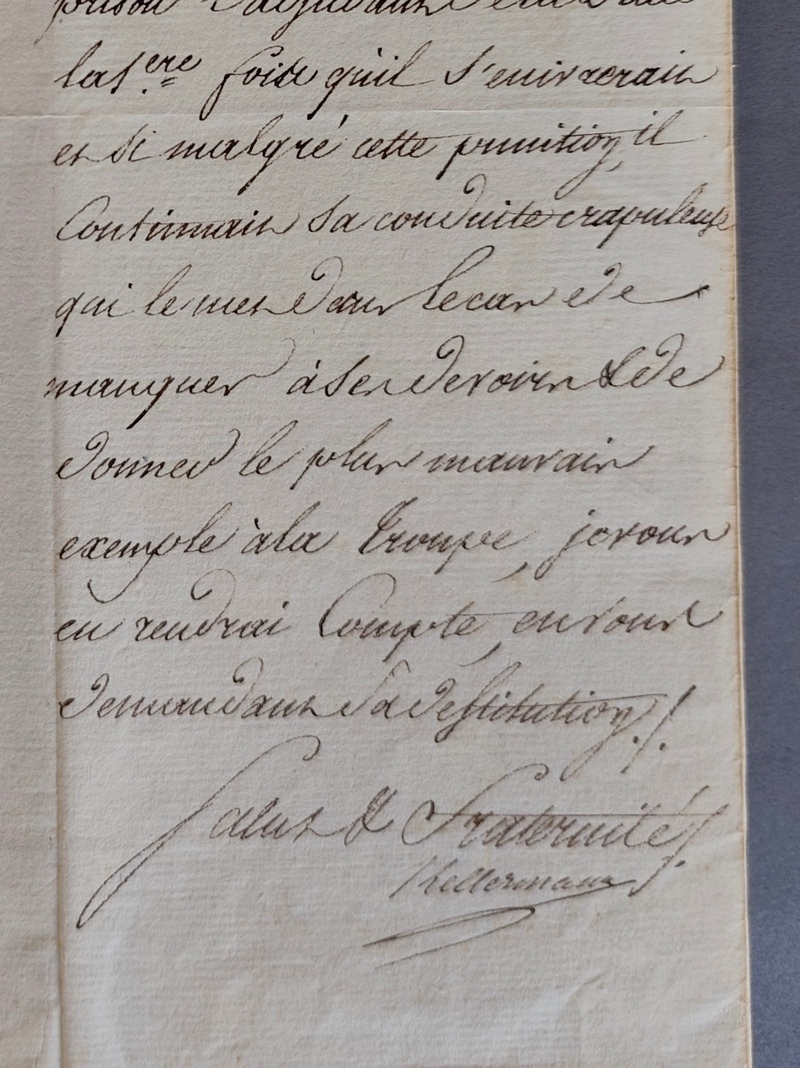 prison
la 1.ere fois qu'il s'enivrerait
et si malgré cette punition, il
Continuait sa conduite crapuleuse
qui le met dans le cas de
manquer à ses devoirs & de
donner le plus mauvais
exemple à la Troupe, je vous
en rendrai Compte, en vous
demandant sa destitution ./.
Salut & Fraternité ./.
Kellermann